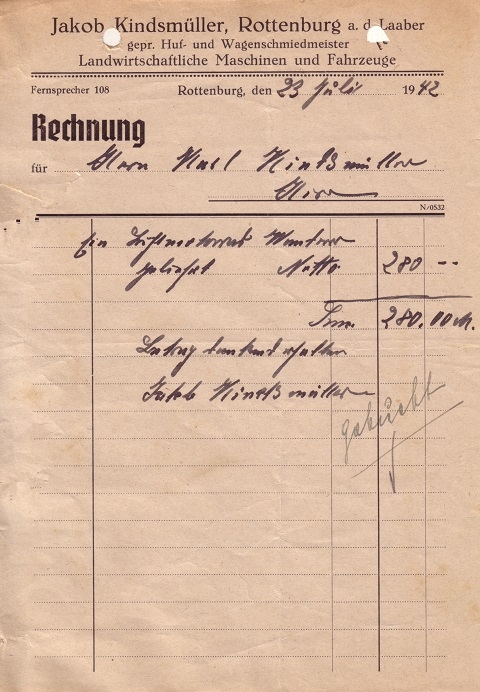 Jakob Kindsmüller, Rottenburg a. d. Laaber
gepr. Huf- und Wagenschmiedmeister
Landwirtschaftliche Maschinen und Fahrzeuge
Fernsprecher 108
Rottenburg, den 23 Juli 1942
Rechnung
für Herrn Karl Kindsmüller
Hier
N/0532
Ein Wanderer
geliefert Netto 280 --
Sum. 280.00 M.
Betrag dankend erhalten
Jakob Kindsmüller
gebucht